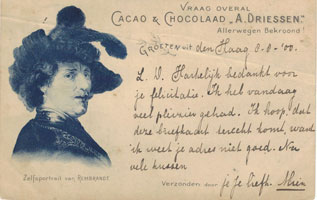 VRAAG OVERAL
CACAO & CHOCOLAAD „A. DRIESSEN."
Allerwegen Bekroond!
GROETEN uit den Haag 8-8-'00.
L. W. Hartelijk bedankt voor
je felicitatie. Ik heb vandaag
veel plezier gehad. Ik hoop dat
deze briefkaart terecht komt, want
ik weet je adres niet goed. Na
vele kussen
Zelfportret van REMBRANDT
Verzonden door je je liefh. Mien